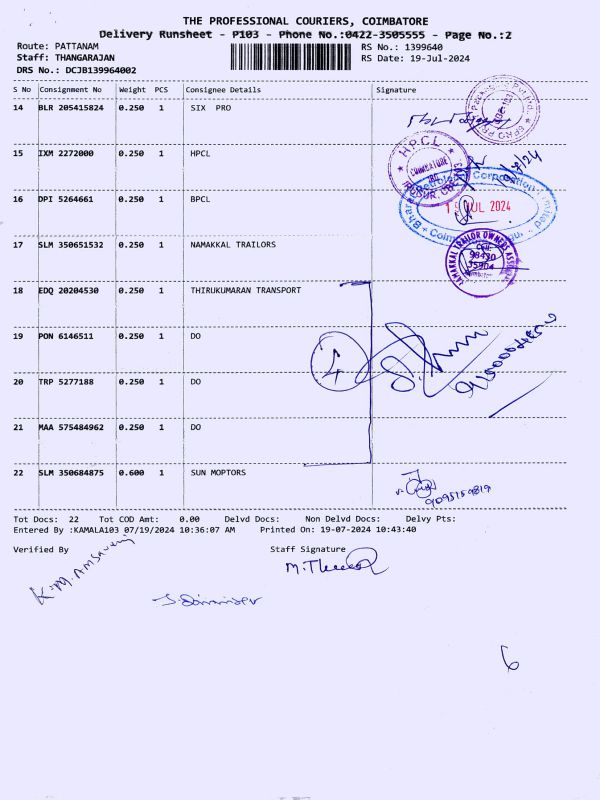 THE PROFESSIONAL COURIERS, COIMBATORE
Delivery Runsheet - P103 - Phone No.:0422-3505555 - Page No.:2
Route: PATTANAM RS No.: 1399640
Staff: THANGARAJAN RS Date: 19-Jul-2024
DRS No.: DCJB139964002
S No Consignment No Weight PCS Consignee Details Signature
14 BLR 205415824 0.250 1 SIX PRO
15 IXM 2272000 0.250 1 HPCL
HPCL
COIMBATORE
16 DPI 5264661 0.250 1 BPCL
JUL 2024
17 SLM 350651532 0.250 1 NAMAKKAL TRAILORS
NAMAKKAL TRAILOR OWNERS
18 EDQ 20204530 0.250 1 THIRUKUMARAN TRANSPORT
19 PON 6146511 0.250 1 DO
4
20 TRP 5277188 0.250 1 DO
21 MAA 575484962 0.250 1 DO
22 SLM 350684875 0.600 1 SUN MOPTORS
9095159819
Tot Docs: 22 Tot COD Amt: 0.00 Delvd Docs: Non Delvd Docs: Delvy Pts:
Entered By :KAMALA103 07/19/2024 10:36:07 AM Printed On: 19-07-2024 10:43:40
Verified By Staff Signature
6